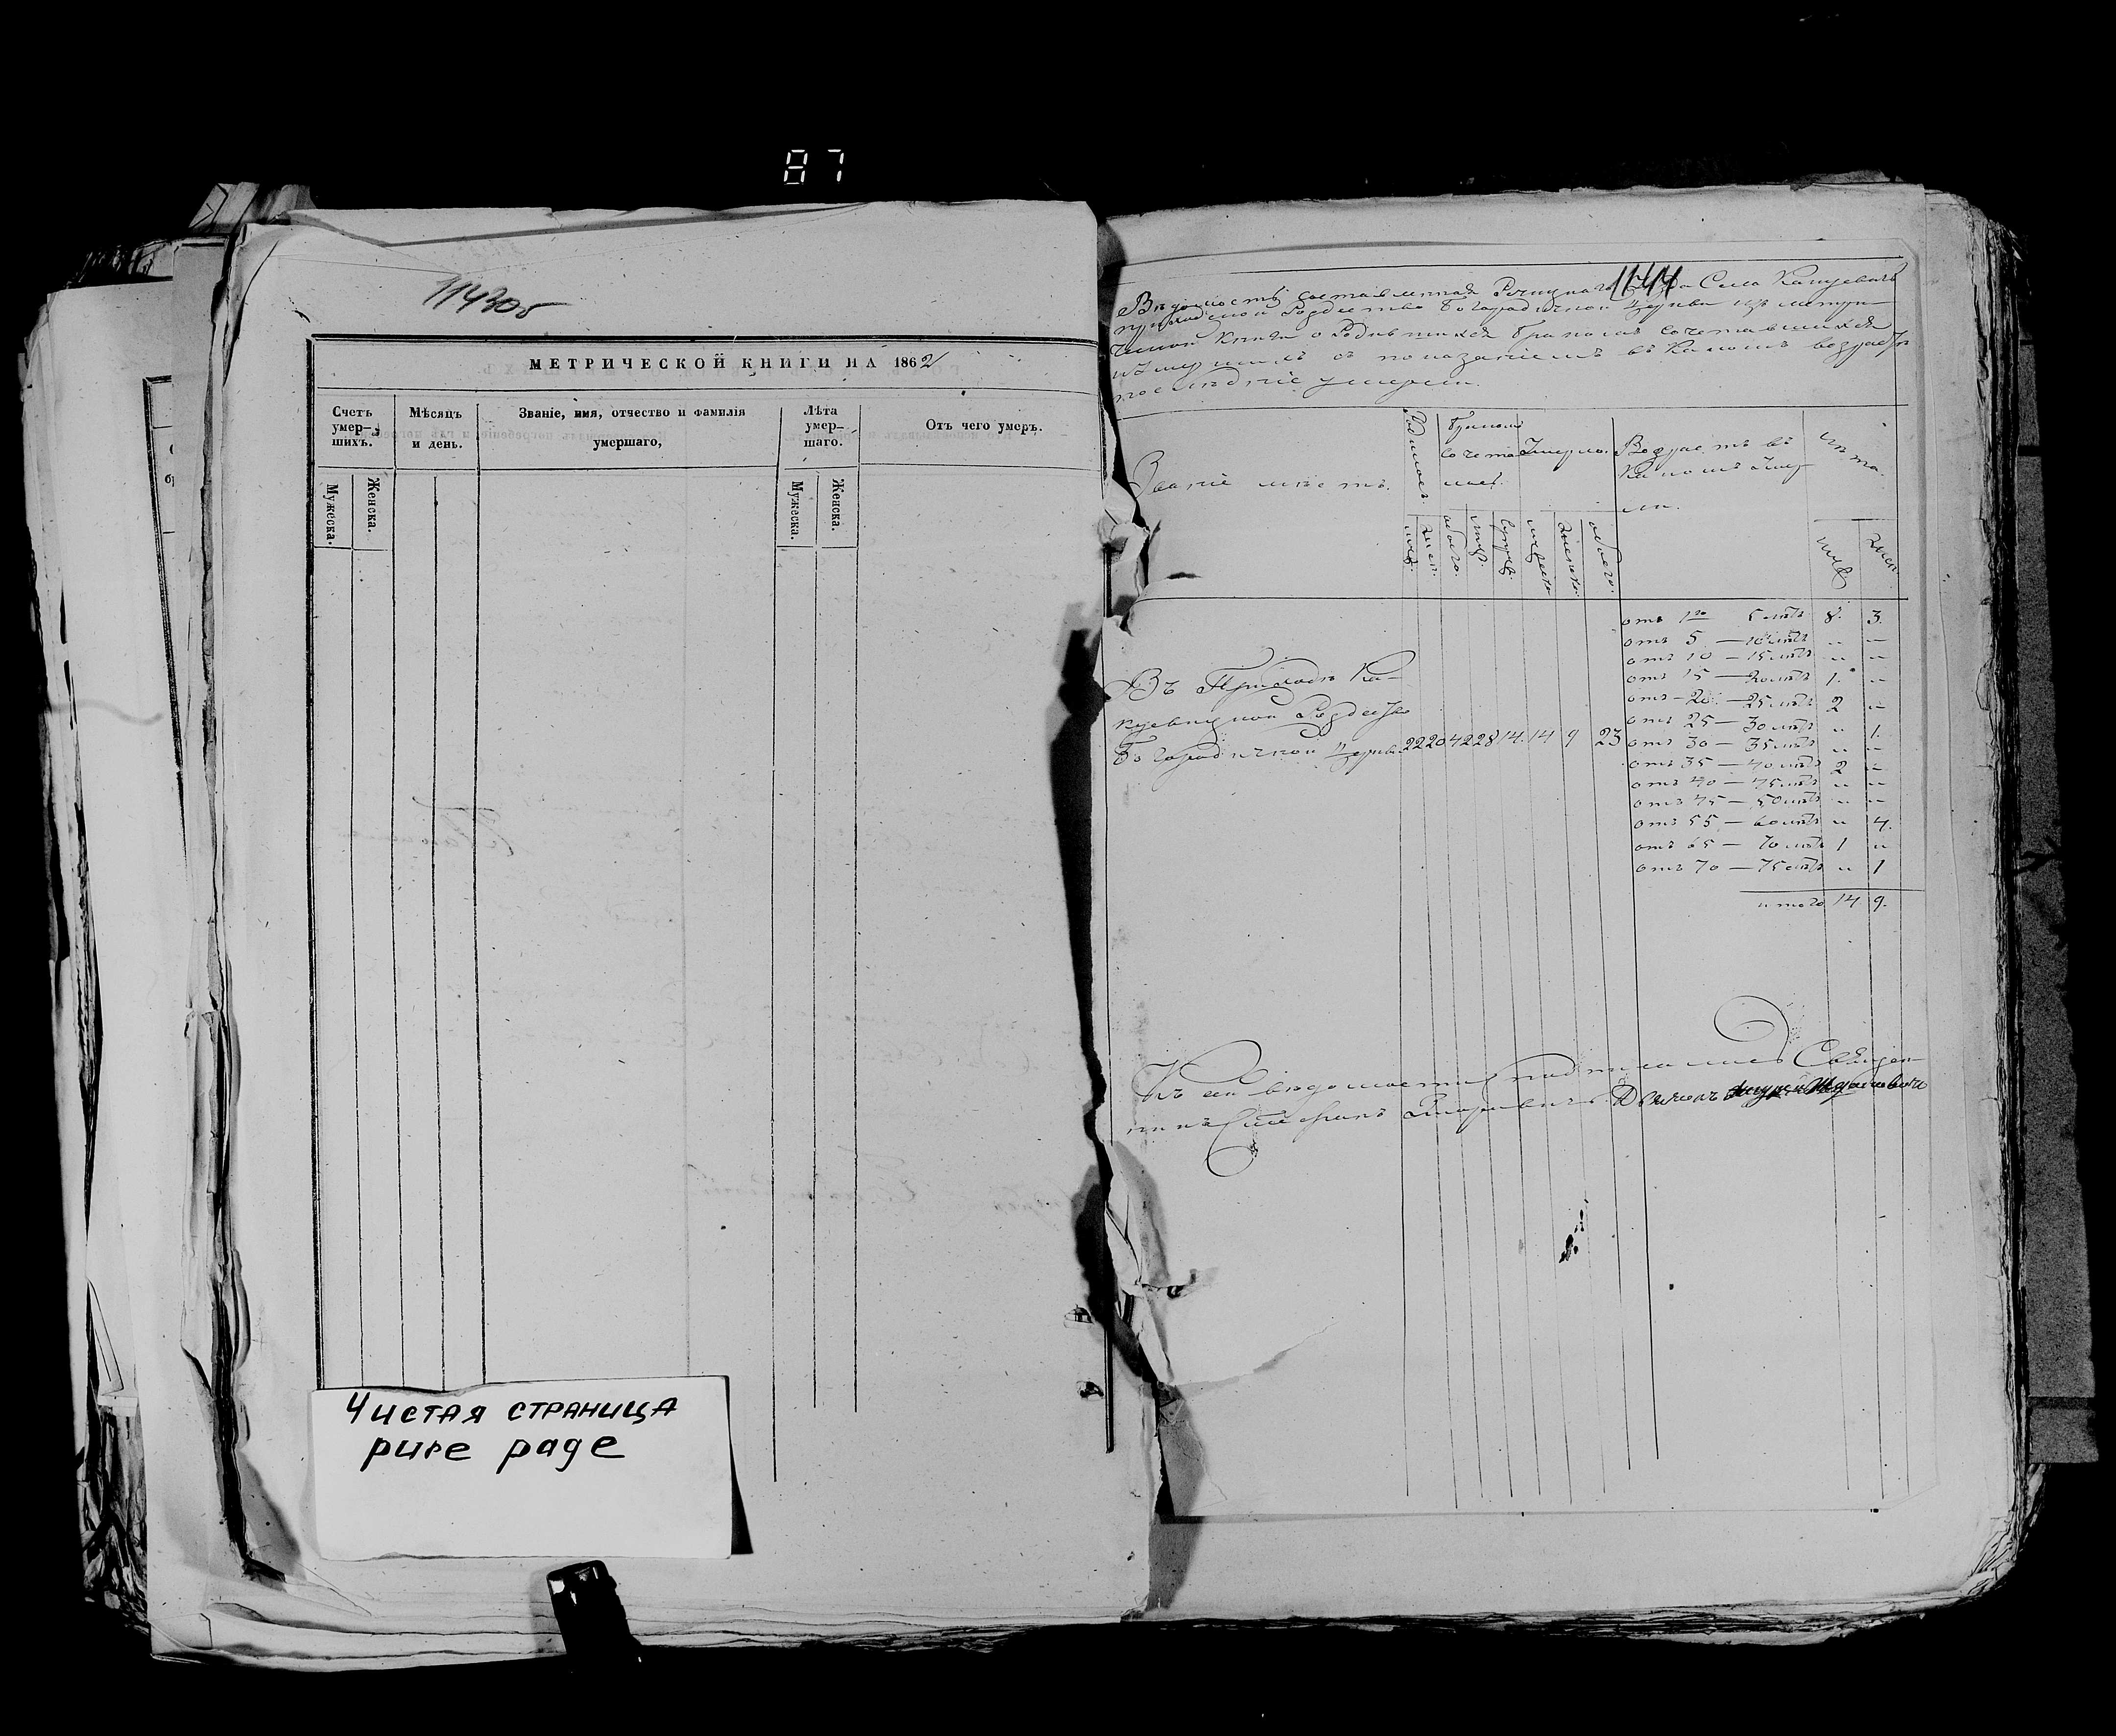 87
1143об
МЕТРИЧЕСКОЙ КНИГИ НА 1862
Счетъ умер-шихъ.
Мѣсяцъ и день.
Званіе, имя, отчество и фамилія умершаго,
Лѣта умер-шаго.
Отъ чего умеръ.
Мужеска.
Женска.
Мужеска.
Женска.
Чистая страница
pure page
1144
Вѣдомость составленная Рѣчицкаго уѣзда Села
приходской Рождество Богородичной Церкви изъ метри-
ческой Книги о Родившихся Бракомъ сочетавшихся
и умершихъ съ показаніемъ въ Какомъ возрастѣ
послѣдніе умерли.
Званіе мѣстъ.
Родилось
Бракомъ сочета-лось
Умерло.
Возрастъ въ Какомъ Умер-ли.
муж.
женс.
обоего.
женска.
обоего.
отъ 1го 5 лѣтъ 8. 3.
отъ 5 — 10 лѣтъ " "
отъ 10 — 15 лѣтъ " "
отъ 15 — 20 лѣтъ 1. "
отъ 20 — 25 лѣтъ 2 "
отъ 25 — 30 лѣтъ " 1.
отъ 30 — 35 лѣтъ " "
отъ 35 — 40 лѣтъ 2 "
отъ 40 — 45 лѣтъ " "
отъ 45 — 50 лѣтъ " "
отъ 55 — 60 лѣтъ " 4.
отъ 65 — 70 лѣтъ 1 "
отъ 70 — 75 лѣтъ " 1
итого 14 9.
Въ Приходѣ Ка-
Рождество
Богородичной Церкви 22 20 42 28 14 14 9 23
Къ сей вѣдомости подписались Священ-
никъ Стефанъ